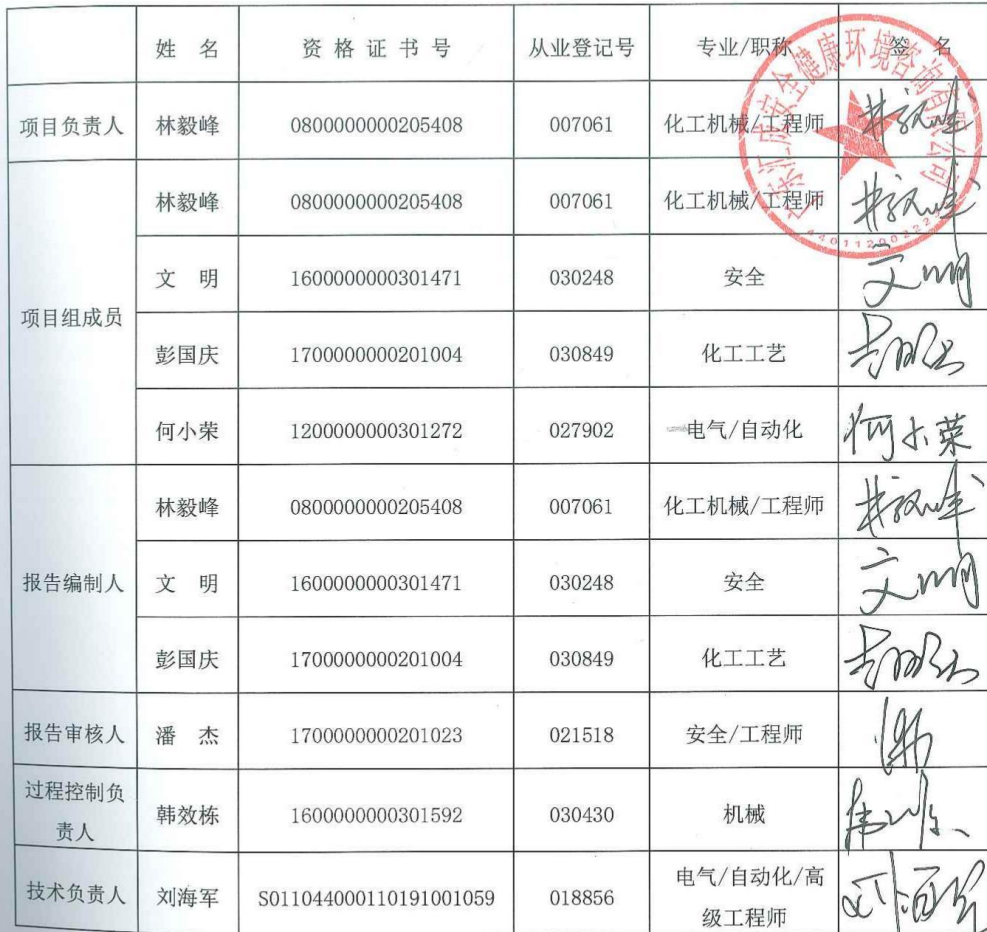 姓 名 资 格 证 书 号 从业登记号 专业/职称 签 名
项目负责人 林毅峰 0800000000205408 007061 化工机械/工程师 林毅峰
项目组成员 林毅峰 0800000000205408 007061 化工机械/工程师 林毅峰
文 明 1600000000301471 030248 安全 文明
彭国庆 1700000000201004 030849 化工工艺
何小荣 1200000000301272 027902 电气/自动化 何小荣
报告编制人 林毅峰 0800000000205408 007061 化工机械/工程师 林毅峰
文 明 1600000000301471 030248 安全 文明
彭国庆 1700000000201004 030849 化工工艺
报告审核人 潘 杰 1700000000201023 021518 安全/工程师
过程控制负
责人 韩效栋 1600000000301592 030430 机械
技术负责人 刘海军 S011044000110191001059 018856 电气/自动化/高
级工程师 刘海军
广东汇成安全健康环境咨询有限公司